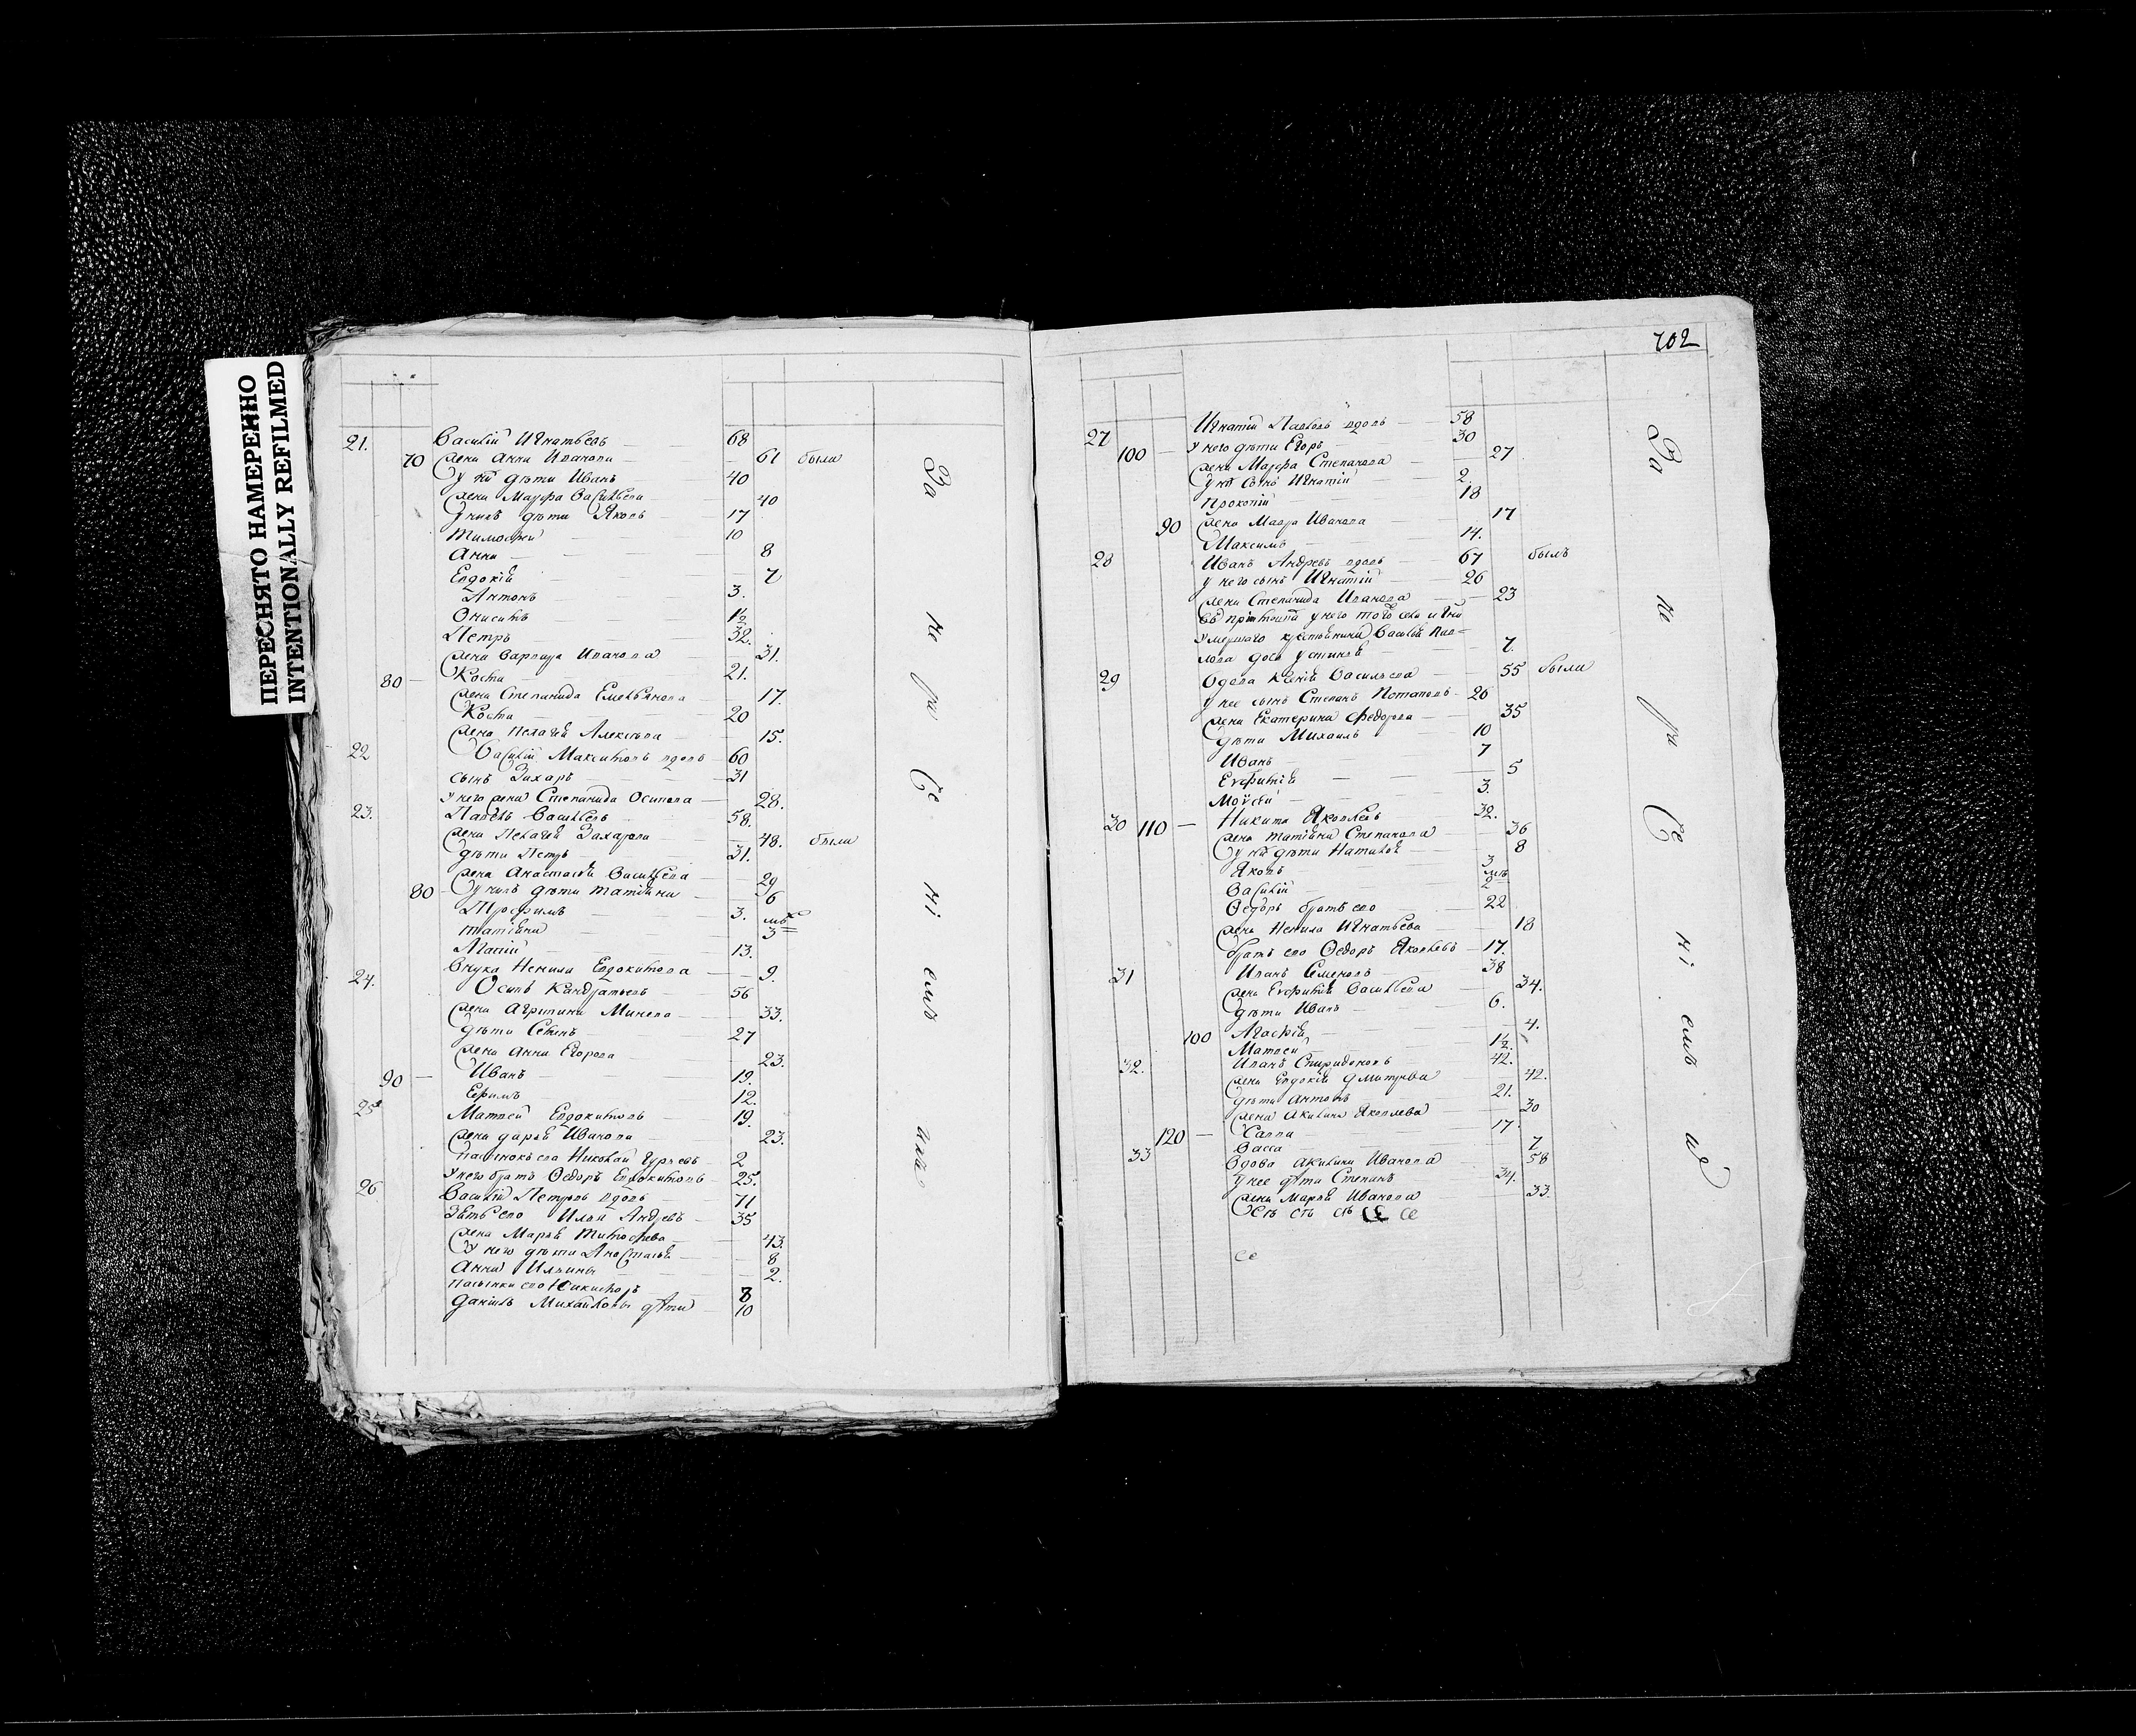 ПЕРЕСНЯТО НАМЕРЕННО
INTENTIONALLY REFILMED
21. Василій Игнатьевъ 68
70 жена Анна Иванова 61 были
У них дѣти Иванъ 40
жена Марфа Васильева 40
У нихъ дѣти Яковъ 17
Тимофей 10
Анна 8
Евдокія 7
Антонъ 3.
Онисимъ 1½
Петръ 32.
жена Варвара Иванова 31.
80 Коста 21.
жена Степанида Емельянова 17.
Коста 20
жена Пелагея Алексѣева 15.
22 Василій Максимовъ вдовъ 60
сынъ Захаръ 31
У него жена Степанида Осипова 28.
23. Павелъ Васильевъ 58.
жена Пелагея Захарова 48. были
дѣти Петръ 31.
жена Анастасія Васильева 29
80 У нихъ дѣти Татіяна 6
Трофимъ 3.
Татіяна 3 мѣ
13.
Внука Ненила Евдокимова 9.
24. Осипъ Кандратьевъ 56
жена Агрипина Минева 33.
дѣти 27
жена Анна Егорова 23.
90 Иванъ 19.
Ефимъ 12.
25 Матвей Евдокимовъ 19.
жена Дарья Иванова 23.
Пасынокъ его Николай Гурьевъ 2
У него братъ Ѳедоръ Евдокимовъ 25.
26 Василій Петровъ вдовъ 71
Зять его Илья Андревъ 35
жена Марья Тимофеева 43.
У него дѣти Анастасья 8
Анна 2.
пасынки его Никифоръ 8
Данила Михайловы дѣти 10
За
не
ра
Се
ні
емъ
702
27 Игнатій Павловъ вдовъ 58
100 У него дѣти Егоръ 30
жена Марфа Степанова 27
У них сынъ Игнатій 2.
Прокопій 18
90 жена Мавра Иванова 17
Максимъ 14.
28 Иванъ Андревъ вдовъ 67 былъ
У него сынъ Игнатій 26
жена Степанида Иванова 23
умершаго крестьянина Василья Пав=
лова дочь Устинья 7.
29 Вдова Ксенія Васильева 55 были
У нее сынъ Степанъ Потаповъ 26
жена Екатерина Федорова 35
дѣти Михаилъ 10
Иванъ 7
Евфимія 5
Моусей 3.
30 110 Никита Яковлевъ 32.
жена Татіяна Степанова 36
У них дѣти Наталья 8
Яковъ 3
Василій 2 мѣ
Ѳедоръ братъ его 22
жена Ненила Игнатьева 18
братъ его Ѳедоръ Яковлевъ 17.
31 Иванъ Семеновъ 38
жена Евфимія Васильева 34.
дѣти Иванъ 6.
100 Агафія 4.
Матвей 1½.
32. Иванъ Спиридоновъ 42.
жена Евдокія Дмитрева 42.
дѣти Антонъ 21.
жена Акилина Яковлева 20
120 Савва 17
Васса 7
33 Вдова Акилина Иванова 58
У нее дѣти Степанъ 34.
жена Марья Иванова 33.
За
не
ра
Се
ні
емъ